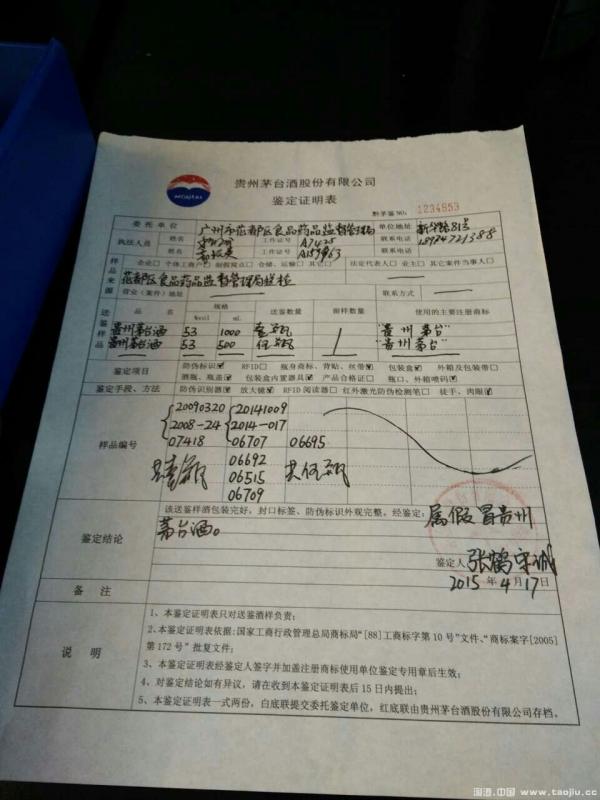 MOUTAI
贵州茅台酒股份有限公司
鉴定证明表
黔茅鉴NO: 1234853
委托单位 广州市花都区食品药品监督管理局 单位地址 新华路81号
执法人员 姓名 工作证号 A7425 联系电话 18924721388
姓名 工作证号 A157963 联系电话
样品来源 企业□ 个体工商户□ 制假窝点□ 仓储、运输□ 其它□ 法定代表人□ 业主□ 其它案件当事人□
花都区食品药品监督管理局送检
营业(案件)地址 联系方式
送鉴样品 品名 规格 %vol mL 送鉴数量 留样数量 使用的主要注册商标
贵州茅台酒 53 1000 壹瓶 "贵州茅台"
贵州茅台酒 53 500 伍瓶 "贵州茅台"
鉴定项目 防伪标识☑ RFID□ 瓶身商标、背贴、丝带☑ 包装盒☑ 外箱及包装带□
酒瓶、瓶盖☑ 包装盒内置器具☑ 产品合格证□ 瓶口、外箱喷码☑
鉴定手段、方法 防伪识别器☑ 放大镜☑ RFID阅读器□ 红外激光防伪检测笔□ 徒手、肉眼☑
样品编号
20090320 20141009
2008-24 2014-017
07418 06707 06695
共壹瓶 06692 共伍瓶
06515
06709
鉴定结论 该送鉴样酒包装完好，封口标签、防伪标识外观完整。经鉴定: 属假冒贵州
茅台酒。
鉴定人 张鹤 宋诚
2015年4月17日
备注
说明
1、本鉴定证明表只对送鉴酒样负责;
2、本鉴定证明表依据:国家工商行政管理总局商标局“[88]工商标字第10号”文件、“商标案字[2005]
第172号”批复文件;
3、本鉴定证明表经鉴定人签字并加盖注册商标使用单位鉴定专用章后生效;
4、对鉴定结论如有异议，请在收到本鉴定证明表后15日内提出;
5、本鉴定证明表一式两份，白底联提交委托鉴定单位，红底联由贵州茅台酒股份有限公司存档。
淘酒.中国 www.taojiu.cc